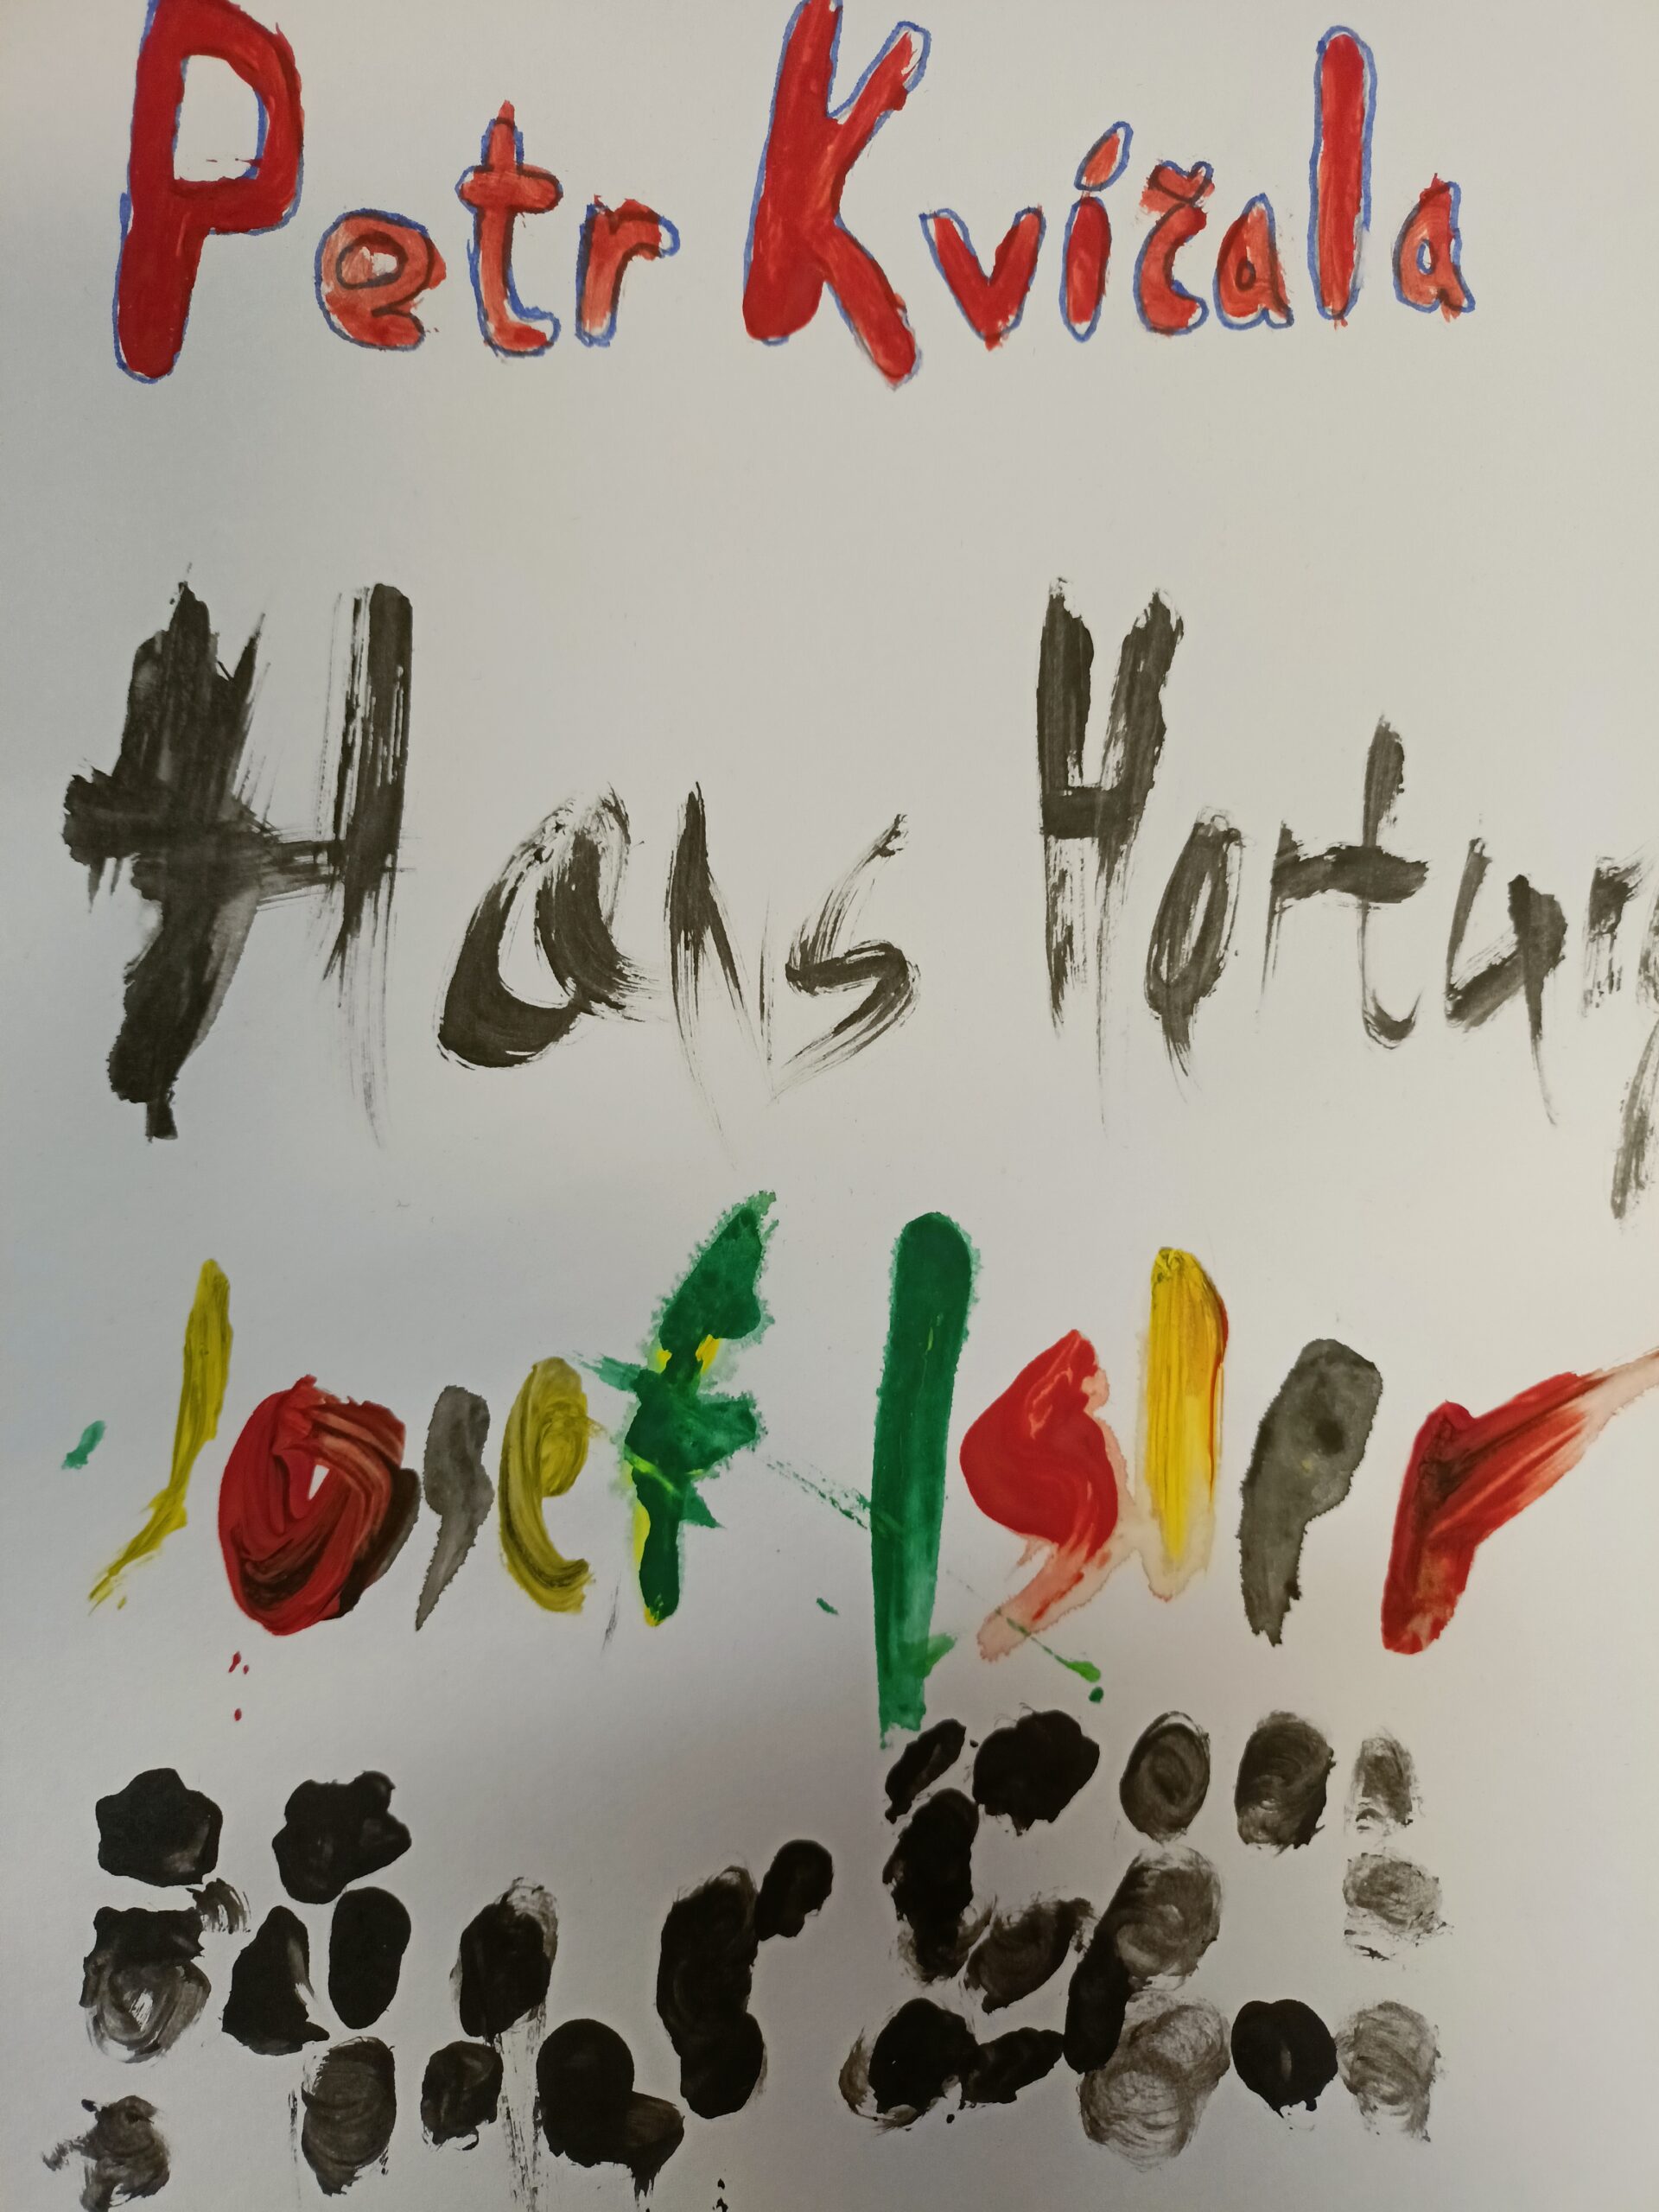 Petr Kvíčala
Hans Hartung
Josef Isler